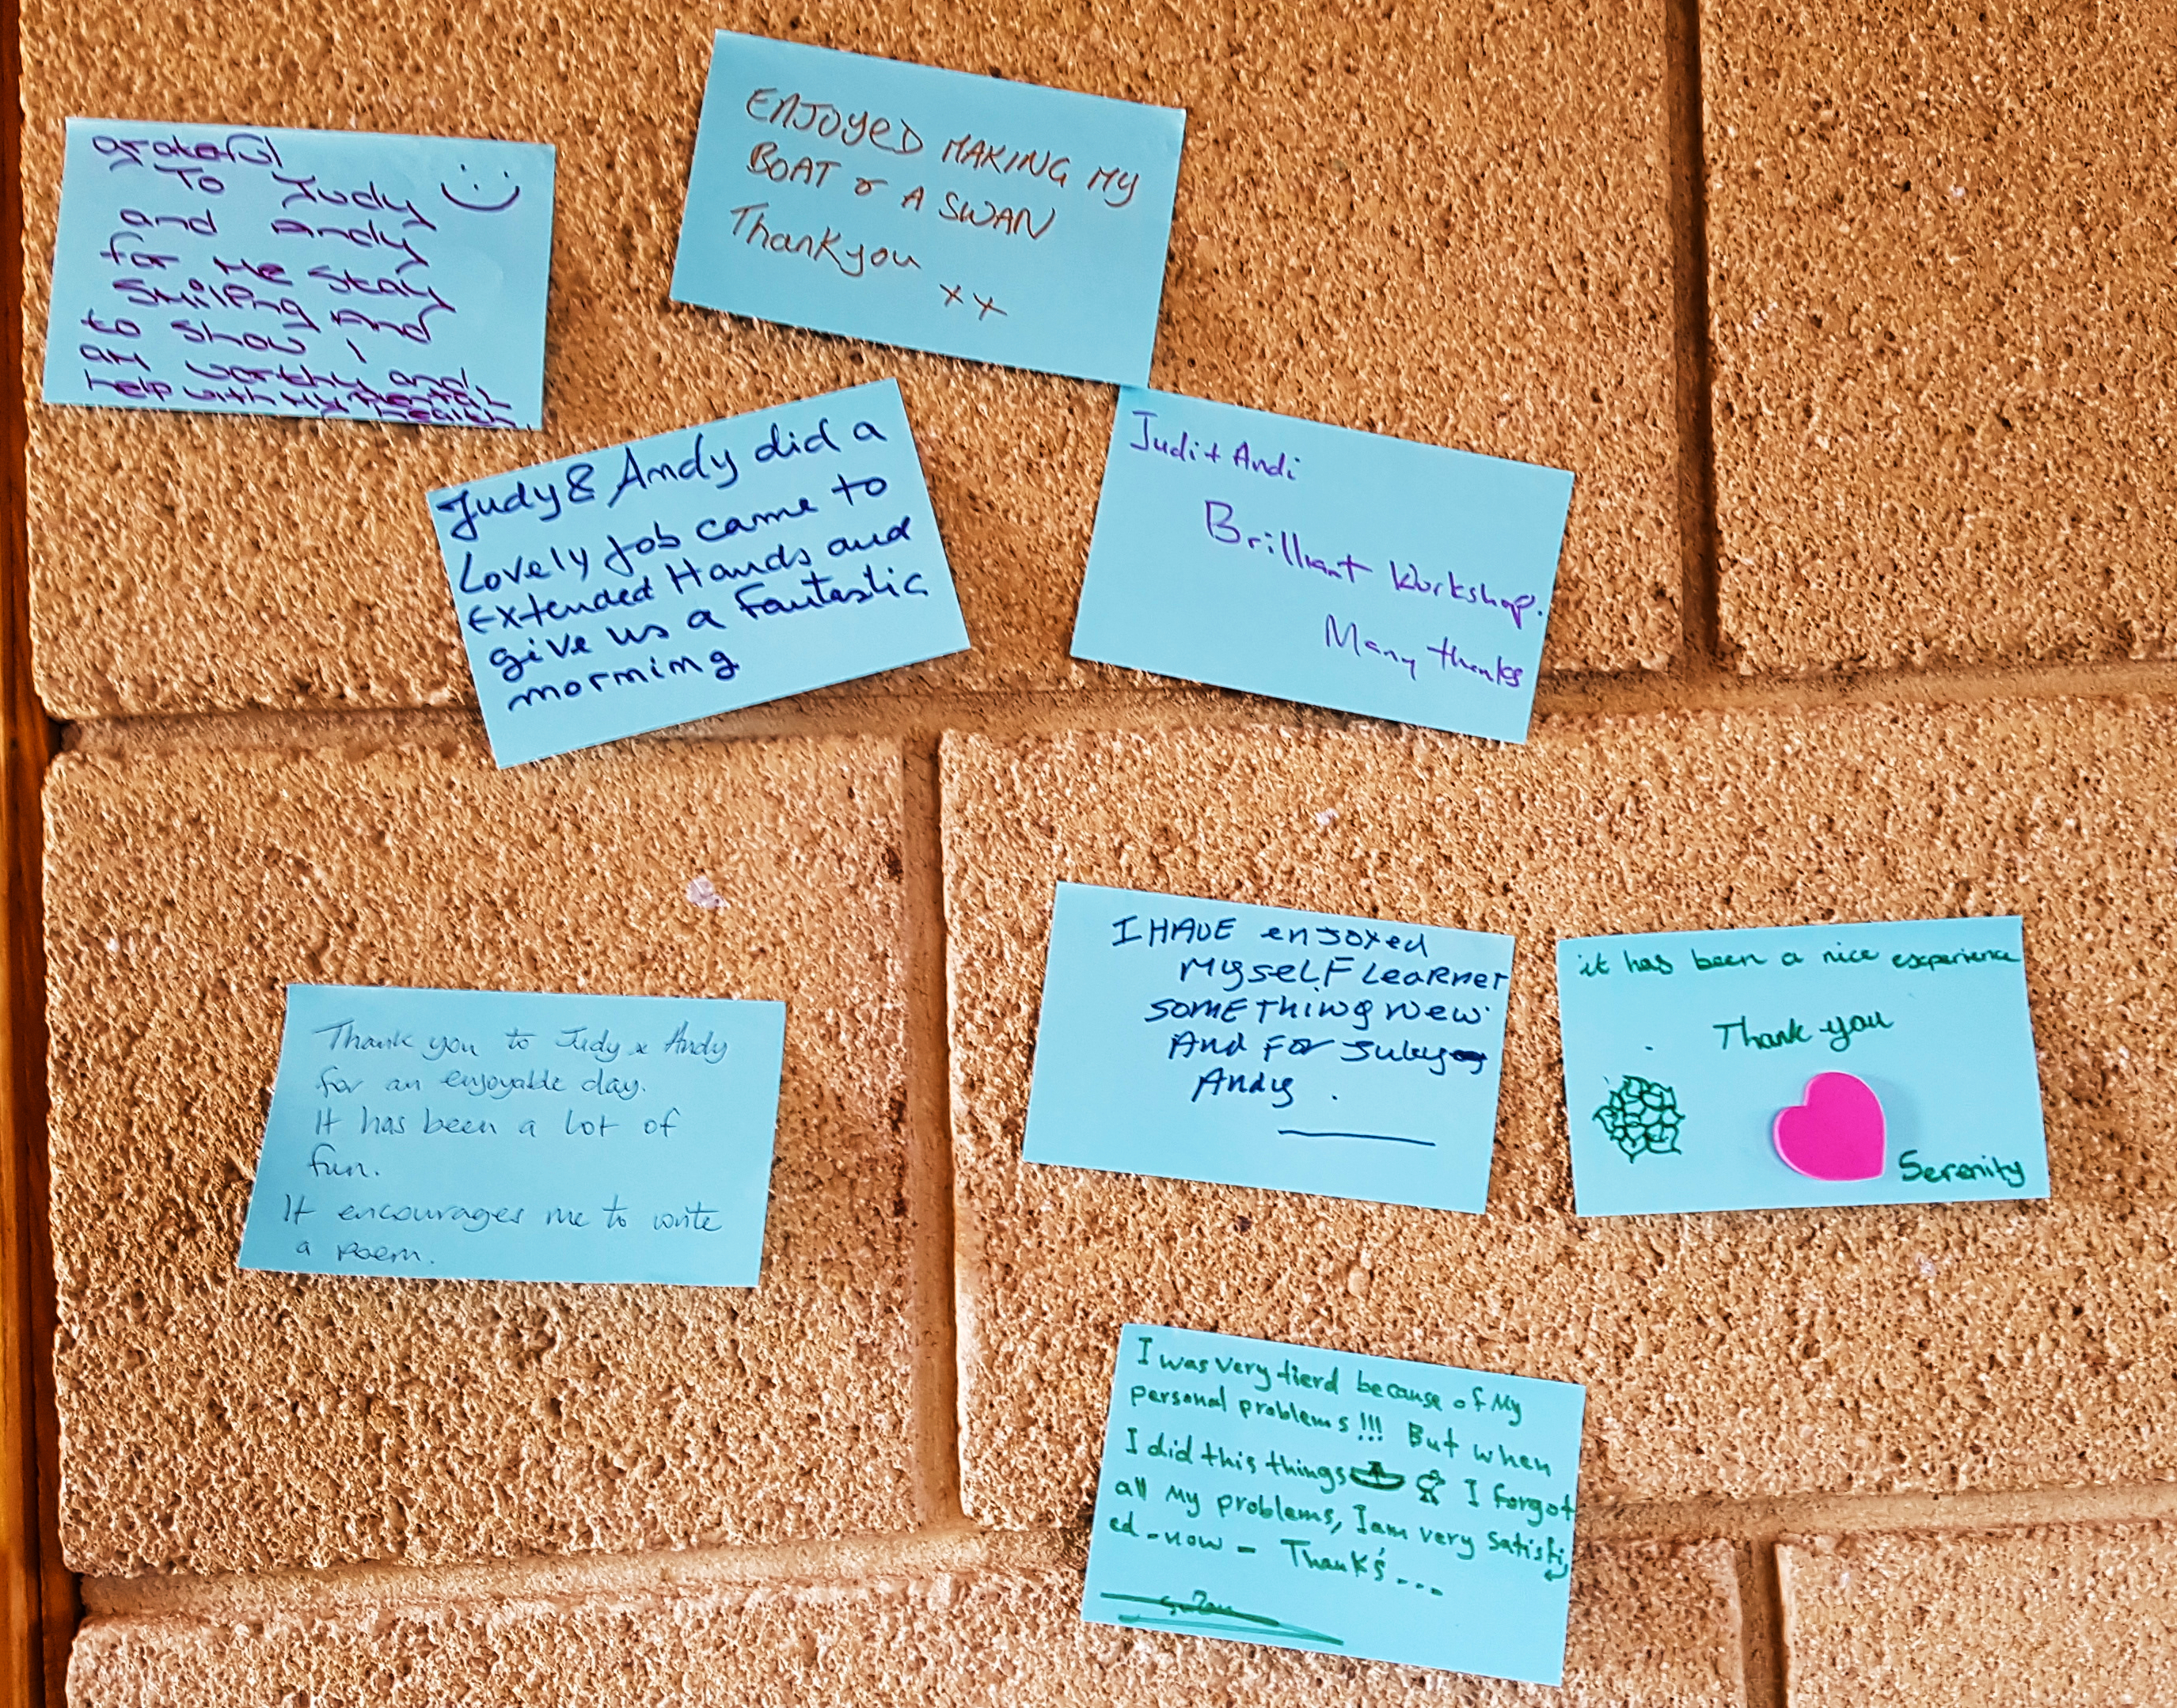 grateful
To Judy
and Andy
for me stay
smiling and
to show I
am worthy and
help with my mental
health
ENJOYED MAKING MY
BOAT or A SWAN
Thankyou
xx
Judy & Andy did a
Lovely Job came to
Extended Hands and
give us a Fantastic
morning
Judi + Andi
Brilliant Workshop.
Many thanks
Thank you to Judy & Andy
for an enjoyable day.
It has been a lot of
fun.
It encourages me to write
a poem.
I HAVE enjoyed
MyseLF Learnet
SOMETHING New
And For
Andy.
it has been a nice experience
Thank you
Serenity
I was very tierd because of My
personal problems!!! But when
I did this things I forgot
all My problems, I am very satisfi
ed-now - Thank's...